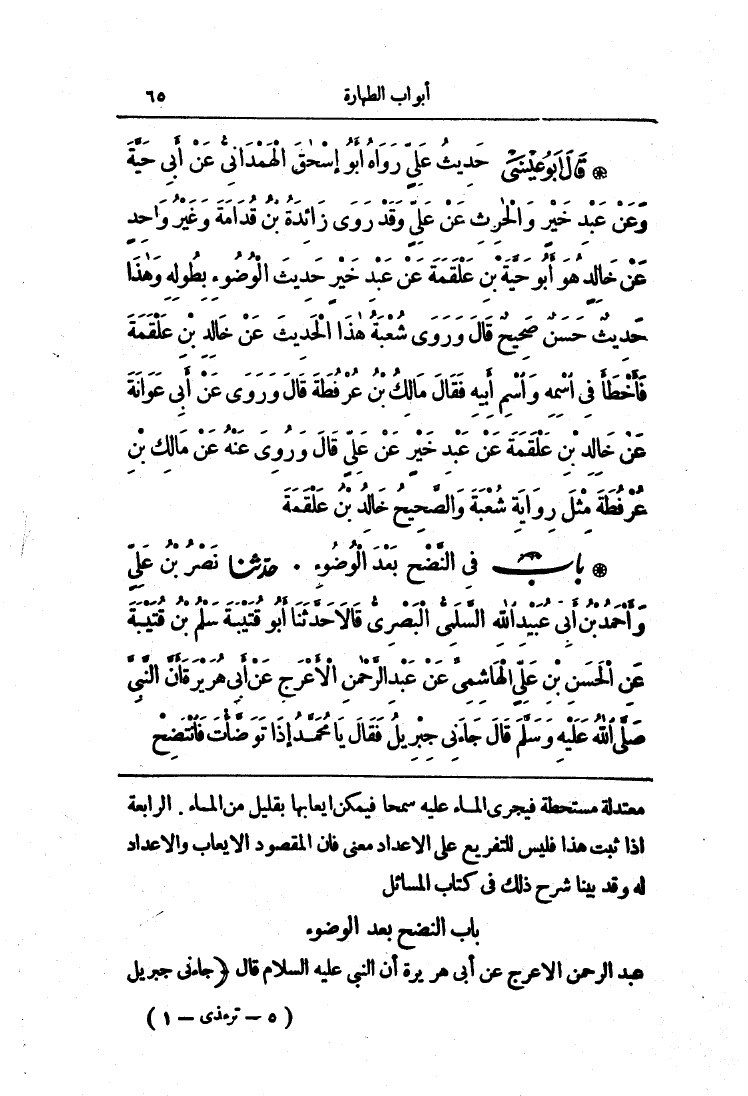 أبواب الطهارة ٦٥
❊ قَالَ أَبُو عِيسَى حَدِيثُ عَلِيٍّ رَوَاهُ أَبُو إِسْحٰقَ الْهَمْدَانِىُّ عَنْ أَبِى حَيَّةَ
وَعَنْ عَبْدِ خَيْرٍ وَالْحٰرِثِ عَنْ عَلِيٍّ وَقَدْ رَوَى زَائِدَةُ بْنُ قُدَامَةَ وَغَيْرُ وَاحِدٍ
عَنْ خَالِدٍ هُوَ أَبُو حَيَّةَ بْنِ عَلْقَمَةَ عَنْ عَبْدِ خَيْرٍ حَدِيثَ الْوُضُوءِ بِطُولِهِ وَهٰذَا
حَدِيثٌ حَسَنٌ صَحِيحٌ قَالَ وَرَوَى شُعْبَةُ هٰذَا الْحَدِيثَ عَنْ خَالِدِ بْنِ عَلْقَمَةَ
فَأَخْطَأَ فِى اسْمِهِ وَاسْمِ أَبِيهِ فَقَالَ مَالِكُ بْنُ عُرْفُطَةَ قَالَ وَرَوَى عَنْ أَبِى عَوَانَةَ
عَنْ خَالِدِ بْنِ عَلْقَمَةَ عَنْ عَبْدِ خَيْرٍ عَنْ عَلِيٍّ قَالَ وَرُوِىَ عَنْهُ عَنْ مَالِكِ بْنِ
عُرْفُطَةَ مِثْلَ رِوَايَةِ شُعْبَةَ وَالصَّحِيحُ خَالِدُ بْنُ عَلْقَمَةَ
❊ بَابٌ فِى النَّضْحِ بَعْدَ الْوُضُوءِ . حَدَّثَنَا نَصْرُ بْنُ عَلِيٍّ
وَأَحْمَدُ بْنُ أَبِى عُبَيْدِ اللهِ السَّلَمِىُّ الْبَصْرِىُّ قَالَا حَدَّثَنَا أَبُو قُتَيْبَةَ سَلْمُ بْنُ قُتَيْبَةَ
عَنِ الْحَسَنِ بْنِ عَلِىٍّ الْهَاشِمِىِّ عَنْ عَبْدِ الرَّحْمٰنِ الْأَعْرَجِ عَنْ أَبِى هُرَيْرَةَ أَنَّ النَّبِىَّ
صَلَّى اللهُ عَلَيْهِ وَسَلَّمَ قَالَ جَاءَنِى جِبْرِيلُ فَقَالَ يَا مُحَمَّدُ إِذَا تَوَضَّأْتَ فَانْتَضِحْ
معتدلة مستحطة فيجرى المــاء عليه سمحا فيمكن ايعابها بقليل من المــاء . الرابعة
اذا ثبت هذا فليس للتفريع على الاعداد معنى فان المقصود الايعاب والاعداد
له وقد بينا شرح ذلك فى كتاب المسائل
باب النضح بعد الوضوء
عبد الرحمن الاعرج عن أبى هريرة أن النبي عليه السلام قال ﴿جاءنى جبريل
( ٥ — ترمذى — ١ )